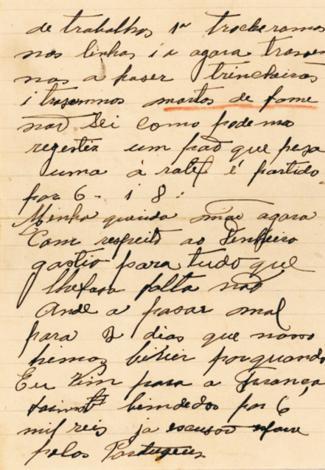 de trabalhos 1º trocheramos
nas linhas i a agara trazem
nos a faser trincheiras
i trazemnos mortos de fome
não sei como podemos
regestir um pão que peza
uma é partido
por 6 - i 8:
Minha querida mãe agora
Com respeito ao Dinheiro
gastio para tudo que
lhe fasa falta não
Ande a pasar mal
para 2 dias que
bebier porquando
Eu vim para a França
bendedos por 6
mil reis ja
pelos Portugueses